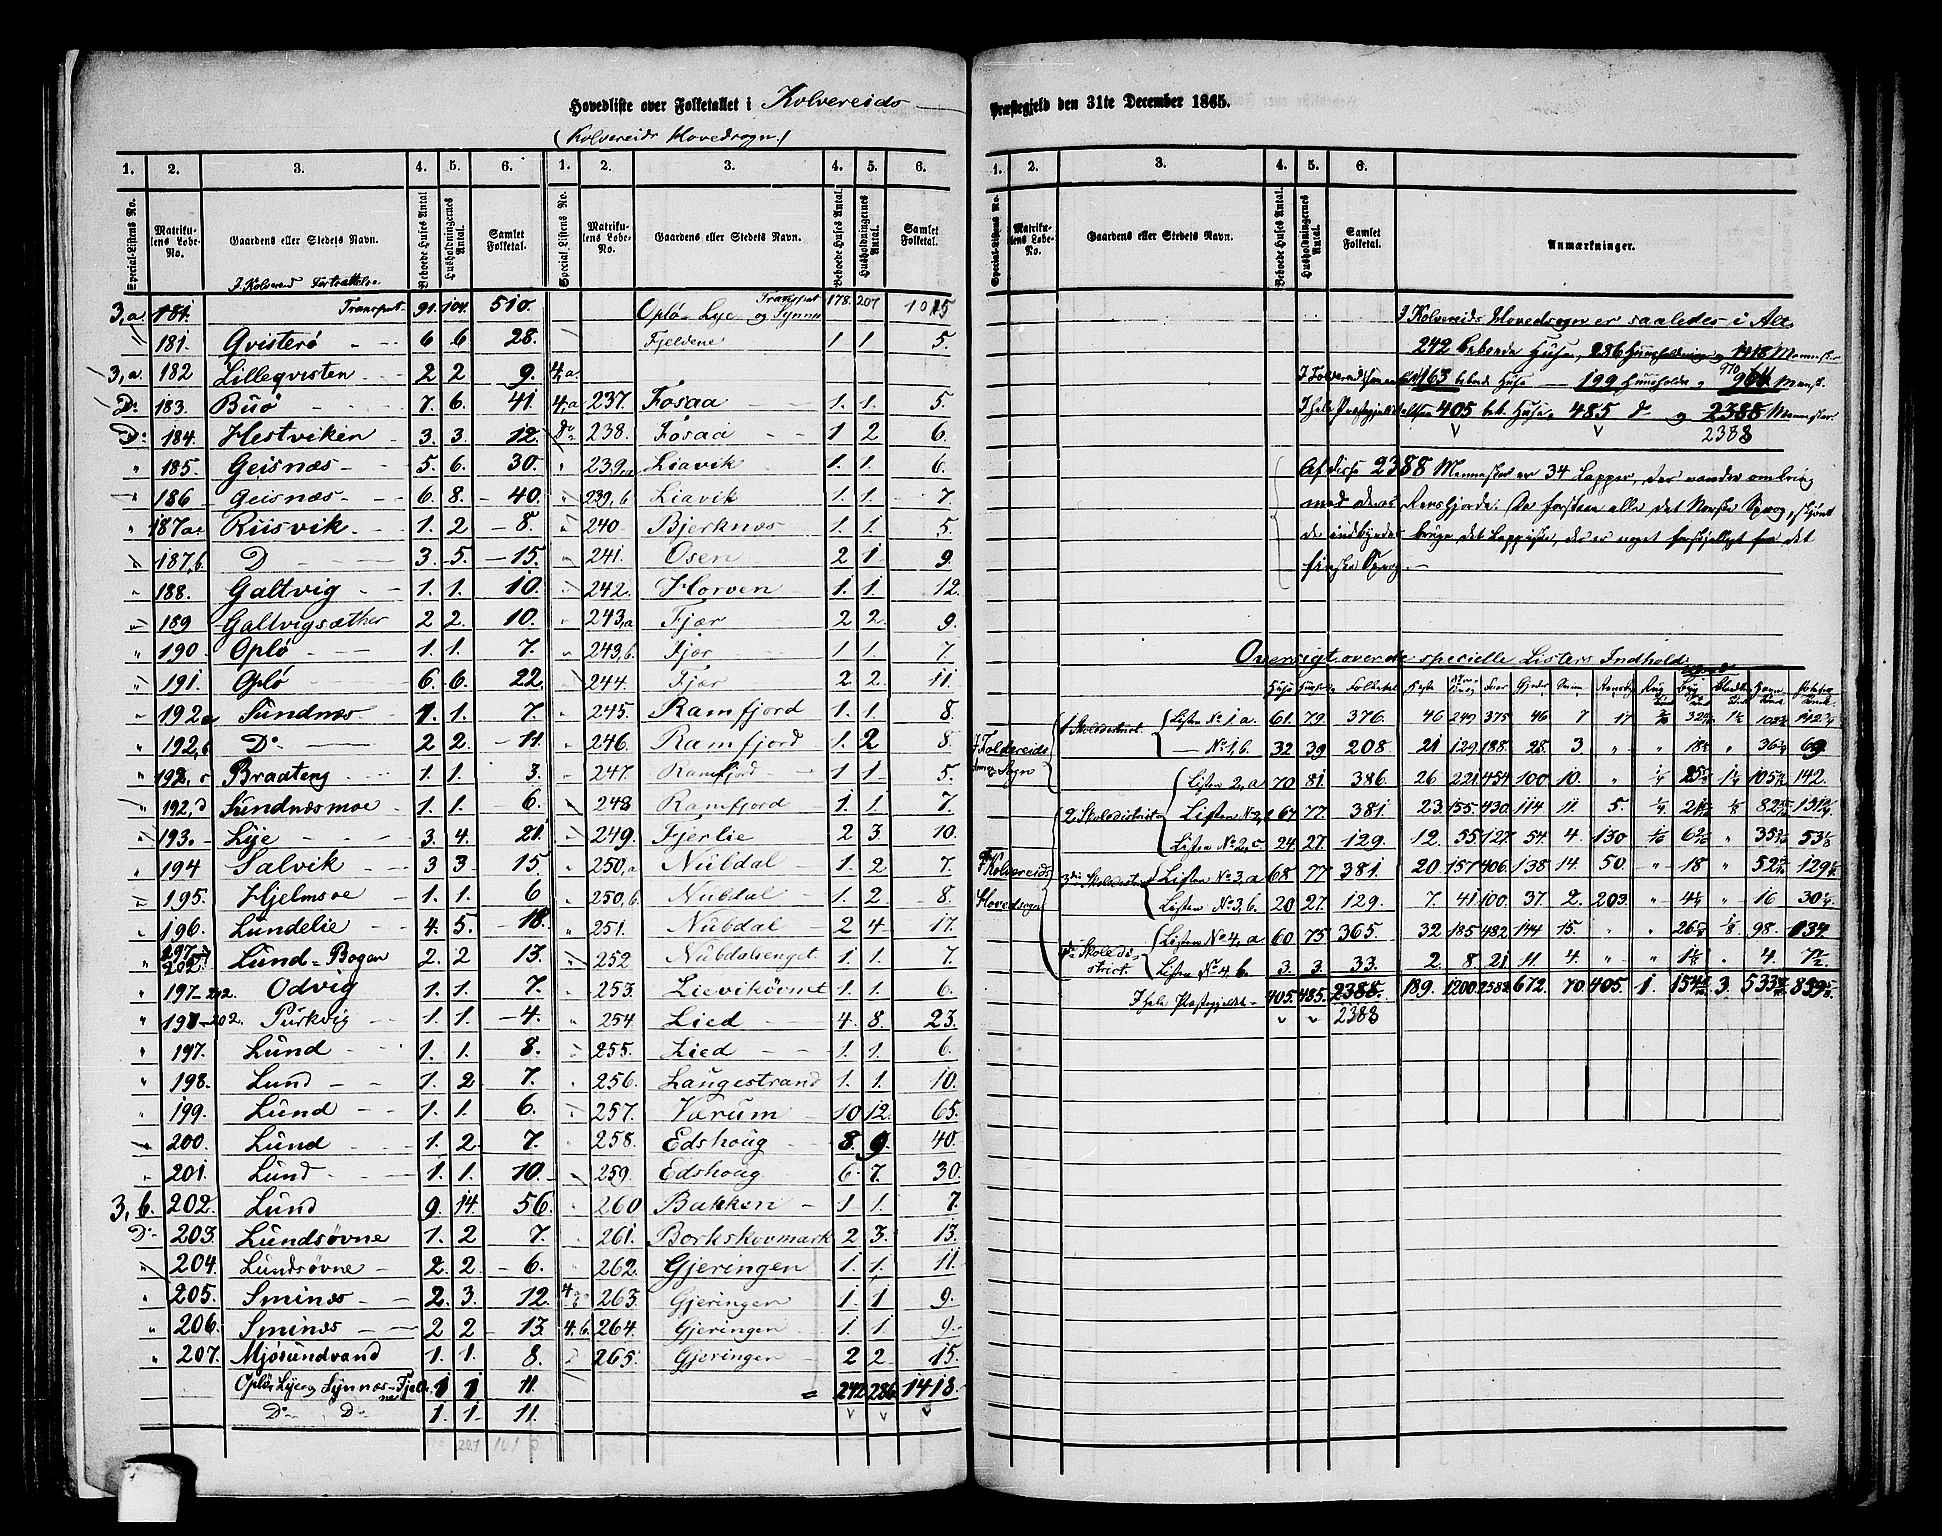 Hovedliste over Folketallet i Kolvereids Præstegjeld den 31te December 1865.
(Kolvereids Hovedsogn)
1. 2. 3. 4. 5. 6. 1. 2. 3. 4. 5. 6.
Special-Listens No. Matrikulens Løbe-No. Gaardens eller Stedets Navn. Beboede Huses Antal Husholdningernes Antal. Samlet Folketal. Special-Listens No. Matrikulens Løbe-No. Gaardens eller Stedets Navn. Beboede Huses Antal. Husholdningernes Antal. Samlet Folketal.
I Kolvereid Fortsættelse
3,a 181. Transport 91. 104. 510.
" 181. Qvisterö 6 6 28.
3,a. 182 Lilleqvisten 2 2 9.
Do 183. Buö 7. 6. 41.
Do 184. Hestviken 3. 3. 12.
" 185. Geisnæs 5. 6. 30.
" 186 Geisnæs 6. 8. 40.
" 187a Riisvik 1. 2 8.
" 187,b D 3. 5. 15.
" 188. Galtvig 1. 1. 10.
" 189 Galtvigsæther 2 2. 10.
" 190 Oplö 1. 1. 7.
" 191. Oplö 6. 6. 22.
" 192a Sundnæs 1. 1. 7.
" 192,b Do 2 2. 11.
" 192,c Braateng 1. 1. 3.
" 192,d Sundnæsmoe 1. 1. 6.
" 193. Lye 3. 4. 21.
" 194 Salvik 3 3 15.
" 195. Hjelmsøe 1. 1. 6
" 196. Lundelie 4. 5. 18.
" 197-202. Lund-Bogen 2. 2 13.
" 197-202. Odvig 1. 1. 7.
" 197-202. Purkvig 1. 1. 4.
" 197. Lund 1. 1. 8.
" 198. Lund 1. 2 7.
" 199. Lund 1. 1. 6.
" 200. Lund 1. 2 7.
" 201. Lund 1. 1. 10.
3,b. 202. Lund 9. 14. 56.
Do 203. Lundsøvne 1. 2 7.
" 204. Lundsøvne 2. 2. 6.
" 205. Sminæs 2. 3. 12.
" 206. Sminæs 2 2 13.
" 207. Mjösundvand 1. 1. 8.
Oplö, Lye og Synnæs-Fjeldene 1 1 11.
Do Do 1. 1. 11.
Oplö Lye og Synnæs Transport 178. 207 1015
Fjeldene 1. 1 5.
4,a.
4,a 237. Fosaa 1. 1. 5.
Do 238. Fosaa 1 2 6.
" 239,a Liavik 1. 1. 6.
" 239,b Liavik 1. 1. 7.
" 240 Bjerknæs 1. 1. 5.
" 241. Osen 2 1 9.
" 242. Horven 1. 1 12.
" 243,a Fjær 2 2. 9.
" 243,b. Fjær 1. 1 7
" 244. Fjær 2 2. 11.
" 245. Ramfjord 1. 1 8.
" 246. Ramfjord 1. 2 8.
" 247. Ramfjord 1 1 5.
" 248 Ramfjord 1 1. 7.
" 249. Fjerlie 2 3. 10.
" 250,a Nubdal 1. 2 7.
" 250,b. Nubdal 1. 2 8.
" 251. Nubdal 2 4 17.
" 252 Nubdalsenget 1. 1. 7.
" 253. Lievikövnet 1. 1. 6
" 254. Lied 4. 8. 23.
" 255. Lied 1. 1. 6.
" 256. Langestrand 1. 1. 10.
" 257. Varum 10 12. 65.
" 258. Edshoug 8. 9. 40.
" 259. Edshoug 6. 7. 30.
" 260 Bakken 1 1. 7.
" 261. Borkskovmark 2 3. 13.
" 262. Gjeringen 1. 1. 11.
4,a 263. Gjeringen 1. 1 9.
4.b. 264. Gjeringen 1. 1 9.
265. Gjeringen 2 2. 15.
= 242 286. 1418.
1. 2. 3. 4. 5. 6.
Special-Listens No. Matrikulens Løbe-No. Gaardens eller Stedets Navn. Beboede Huses Antal. Husholdningernes Antal. Samlet Folketal. Anmærkninger.
I Kolvereids Hovedsogn er saaledes i Alt
242 beboede Huse, 286 Huusholdninger og 1418 Mennesker
163 beboede Huse — 199 Huushold. og 970 Mensk.
I hele Præstegjeldet altsaa 405 beb. Huse, 485 Do og 2388 Mennesker
2388
Af disse 2388 Mennesker er 34 Lapper, der vandre omkring
med deres Renshjorde. De forstaae alle det Norske Sprog, skjönt
de indbyrdes bruge det Lappiske, der er noget forskjelligt fra det
finske Sprog.
Oversigt over de specielle Listers Indhold
Huse Huush. Folketal Heste Faar Gjeder Sviin Rensdyr Rug Byg Blandk. Havre Poteter
I Foldereids Sogn
1 Skoledistrict Listen No 1 a. 61. 79. 376. 46 249 375 46 7 17
No 1,b. 32 39 208. 21 129. 188. 28. 3 " "
2 Skoledistrict Listen 2,a 70 81. 386. 26 221 454 100 10. " 142.
Listen No 2,b 67 77. 381. 23 155. 430. 114 11. 5
Listen No 2,c 24 27. 129. 12. 55. 127. 54. 4. 130
I Kolvereids Hovedsogn
3die Skoledistrict Listen No 3,a 68 77 381. 20 157 406. 138 14. 50
Listen No 3,b. 20 27. 129. 7. 41 100. 37. 2. 203 " 16
4de Skoledistrict Listen No 4,a 60 75 365. 32 185 482 144 15. " 98. 134
Listen No 4,b. 3. 3. 33. 2. 8. 21 11. 4. " " 4.
I hele Præstegjeldet 405. 485. 2388. 189. 1200 2582 672. 70 405. 1. 3.
2388